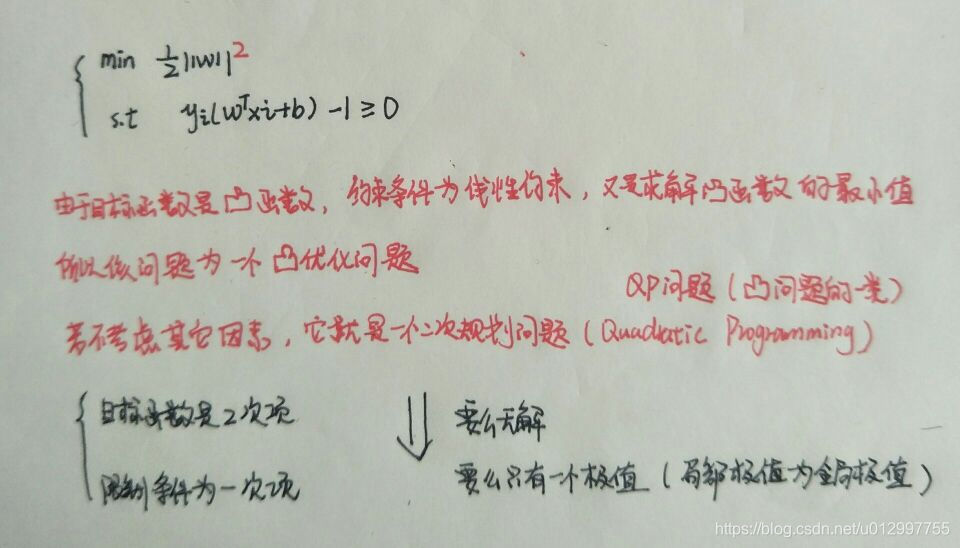 min 1/2 ||w||²
s.t yi(wᵀxi+b) -1 ≥ 0
由于目标函数是凸函数，约束条件为线性约束，又是求解凸函数的最小值
所以该问题为一个凸优化问题
QP问题（凸问题的一类）
若不考虑其它因素，它就是一个二次规划问题（Quadratic Programming）
目标函数是2次项
限制条件为一次项
要么无解
要么只有一个极值（局部极值为全局极值）
https://blog.csdn.net/u012997755